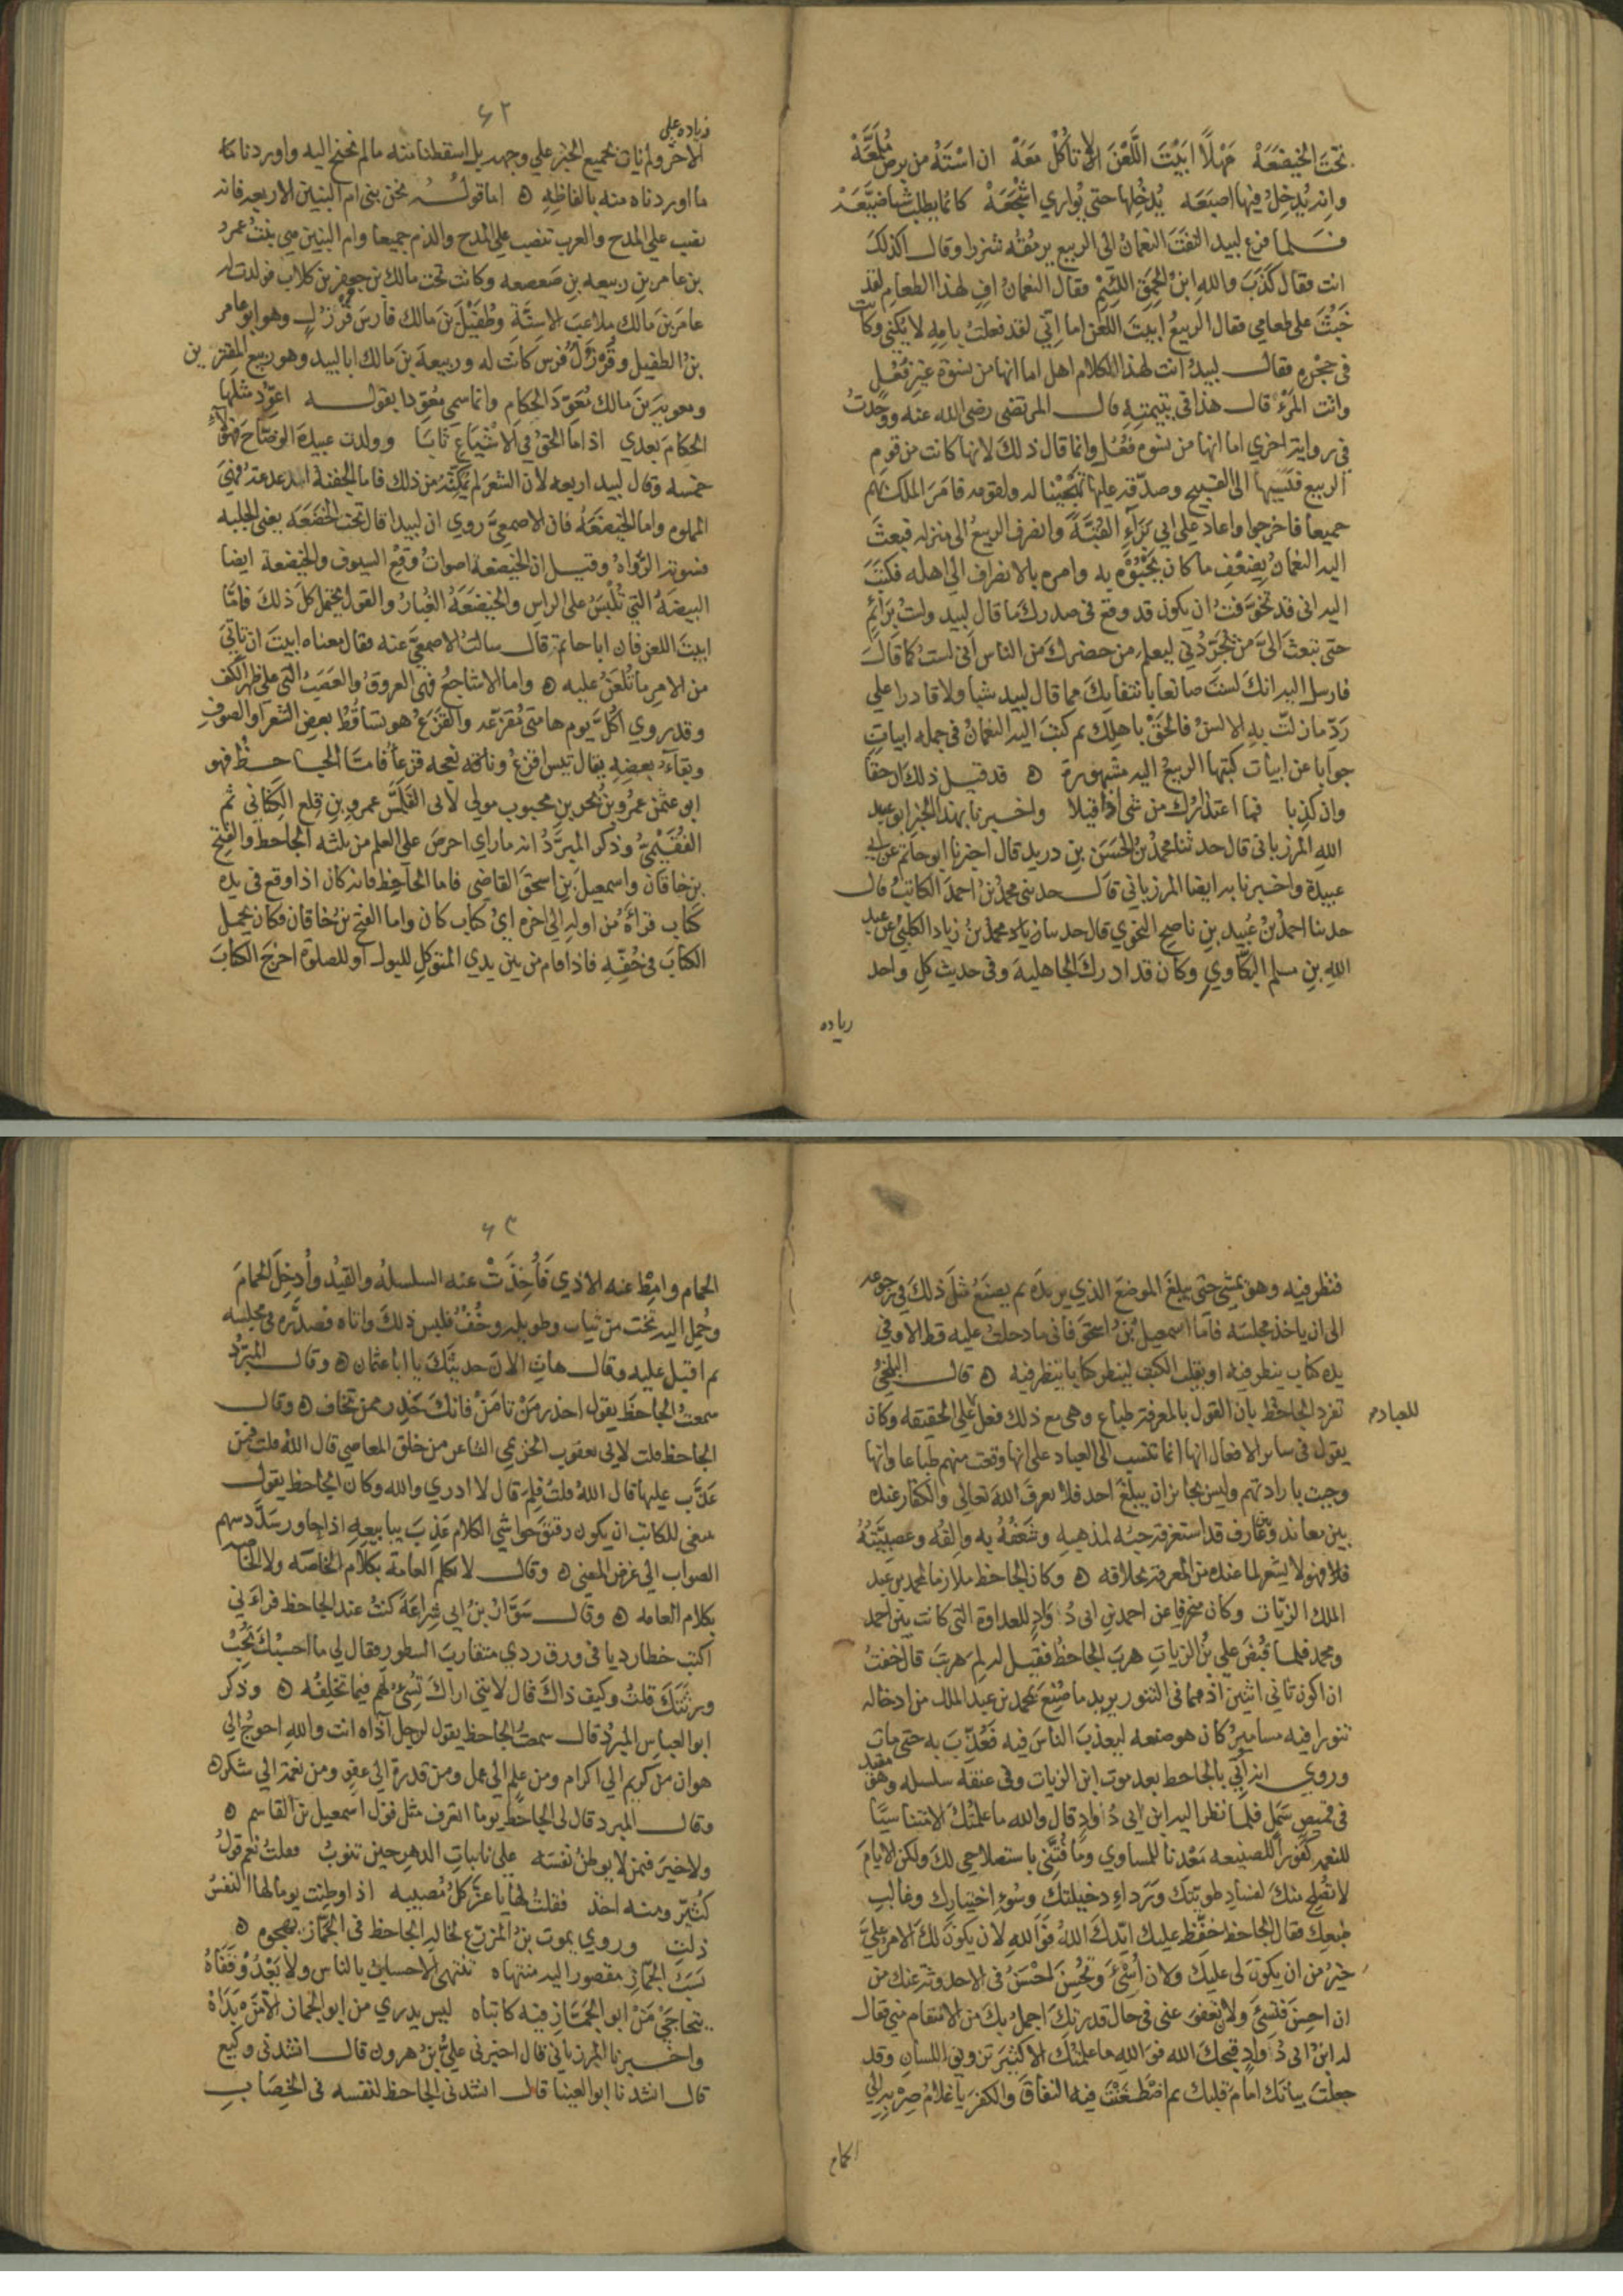 تحتَ الخَيضَعَهْ مَهْلاً ابَيْتَ اللَّعْنَ لا تأكُلْ مَعَهْ ان اسْتَهُ من بَرصٍ مُلَمَّعَهْ
وانه يُدخِلُ فيها اصبعَه يُدخِلُها حتى يُوارِي اشْجَعَهْ كانما يطلب شيا ضيَّعَهْ
فلما فرغ لبيد التفت النعمانُ الى الربيع يرمُقُه شزرا وقال اكذلكَ
انت فقال كَذَبَ واللهِ ابنُ الحَمِقِ اللئيم فقال النعمانُ افٍ لهذا الطعامِ لقد
خَبُثَ علي طعامي فقال الربيعُ ابيتَ اللعن اما اِنّي لقد فعلتُ بامِهِ لا يكني وكانت
في حِجْرِهِ فقال لبيدٌ انت لهذا الكلامِ اهل اما انها من نسوَةٍ غيرِ فُعُلٍ
وانت المَرءُ قال هذا في يتيمتِهِ قال المرتضى رضى الله عنه ووجدتُ
في روايةٍ اخري اما انها من نسوةٍ فُعُلٍ وانما قال ذلك لانها كانت من قومِ
الربيع فنَسَبَها الى القبيح وصدّقه عليها تهجينا له ولقومه فامَرَ الملك بهم
جميعا فاخرجوا واعاد علي ابي بَرَآءٍ القُبَّةَ وانصرف الربيعُ الى منزله فبعثَ
اليه النعمانُ بضِعْفِ ما كان يَحْبُوه به وامره بالانصراف الى اهله فكتبَ
اليه انى قد تخوَّفتُ ان يكون قد وقع في صدرك ما قال لبيد ولستُ برائمٍ
حتى تبعثَ اليَّ من يُجَرِّدُني ليعلم من حضرك من الناس انى لست كما قالَ
فارسل اليه انك لستَ صانعا بانتفايكَ مما قال لبيد شيا ولا قادرا علي
رَدِّ ما زلّت به الالسنُ فالحَقْ باهلِكَ ثم كتبَ اليه النعمانُ في جملهِ ابياتٍ
جوابا عن ابيات كتبها الربيعُ اليه مشهورة ه قد قيل ذلك ان حقا
وان كذبا فما اعتذارُك من شي اذا قيلا واخبرنا بهذا الخبر ابو عبيد
الله المرزبانى قال حدثنا محمدُ بنُ الحسَن بنِ دريد قال اخبرنا ابو حاتم عن ابي
عبيدة واخبرنا به ايضا المرزبانى قال حدثنى محمد بنُ احمدَ الكاتبُ قال
حدثنا احمدُ بنُ عُبيدِ بنِ ناصحٍ النحوي قال حدثنا زياد محمدُ بنُ زياد الكلبيُّ عن عبد
اللهِ بنِ مسلم البكّاوي وكان قد ادرك الجاهلية وفي حديث كلِ واحد
زياده
٦٢
زياده علي
الاخر ولم نات بجميع الخبر علي وجهه بل اسقطنا منه ما لم نحتج اليه واوردنا
ما اوردناه منه بالفاظِهِ ه اما قولُه نحن بنى ام البنين الاربعه فانه
نصب علي المدح والعرب تنصب علي المدح والذم جميعا وام البنين هي بنتُ عمرو
بن عامر بنِ ربيعه بنِ صَعصعه وكانت تحت مالك بن جعفر بن كلاب فولدت له
عامرَ بنَ مالك مُلاعِبَ الاسِنَّةِ وطُفَيْلَ بنَ مالك فارسَ قُرْزُلٍ وهو ابو عامر
بنُ الطفيل وقُرْزُلٌ فرسٌ كانت له وربيعةَ بنَ مالك ابا لبيد وهو ربيع المقترين
ومعوية بنَ مالك مُعَوِّدَ الحكامِ وانما سمي مُعَوِّدا بقوله اعوِّدُ مثلَها
الحكامَ بعدي اذا ما الحقُّ في الاشياعِ نابَا وولدت عبيدةَ الوضّاحَ فهولآءِ
خمسه وقال لبيد اربعه لان الشعرَ لم يمكِّنْه من ذلك فاما الجفنه المدعدعه فهي
المملوه واما الخيضَعَهُ فان الاصمعيَّ روي ان لبيدا قال تحت الخَضَعَه يعنى الجلبه
فسوته الرُواهُ وقيل ان الخيضعه اصواتُ وقْعِ السيوف والخيضعة ايضا
البيضهُ التي تُلْبَسُ على الراسِ والخيضَعَهُ الغُبارُ والقولُ يحتمل كلَ ذلكَ فامّا
ابيتَ اللعن فان ابا حاتم قال سالتُ الاصمعيَّ عنه فقال معناه ابيتَ ان تاتيَ
من الامرِ ما تُلعَنُ عليه ه واما الاشاجعُ فهي العروقُ والعصبُ التي على ظهر الكف
وقد روي اكُلَّ يوم هامتى مُقزّعه والقزَعُ هو تساقُطُ بعضِ الشعرِ او الصوفِ
وبقآءُ بعضِه يقال تيس اقزعُ ونعجه قزعآءُ فامّا الجاحظُ فهو
ابو عثمن عمرُو بنُ بحرِ بنِ محبوب مولى لابى القَلَمَّس عمرو بنِ قلع الكِنَاني ثم
الفُقَيْمِيُّ وذكر المبرَّدُ انه ما راي احرصَ علي العلم من ثلثه الجاحظُ والفتح
بن خاقان واسمعيلَ بنِ اسحق القاضي فاما الجاحظ فانه كان اذا وقع في يده
كتابٌ قرأهُ من اولهِ الي اخره ايَّ كتاب كان واما الفتح بنُ خاقان فكان يحمل
الكتابَ في خُفِّهِ فاذا قام من بين يدي المتوكلِ للبول او للصلوة اخرج الكتابَ
فنظر فيه وهو يمشي حتى يبلغَ الموضعَ الذي يريده ثم يصنعُ مثلَ ذلكَ في رجوعه
الى ان ياخذ مجلسَه فامّا اسمعيلُ بنُ اسحقَ فانى ما دخلتُ عليه قط الا وفي
يده كتاب ينظر فيه او يقلب الكتب ليطلب كتابا ينظر فيه ه قال البلخيُّ
تفرد الجاحظُ بان القول بالمعرفة طباع وهى مع ذلك فعل علي الحقيقه وكان
للعباده
يقول في سائر الافعال انها انما تنسب الى العباد على انها وقعت منهم طباعا وانها
وجبت بارادتهم وليس بجايز ان يبلغَ احد فلا يعرفَ اللهَ تعالى والكفار عنده
بين معاند وبين عارف قد استغرقه حبُّه لمذهبِهِ وشغفُهُ به وإلفُه وعصبيَّتُهُ
فلا فهو لا يشعر لما عنده من المعرفة بخلاقه ه وكان الجاحظ ملازما لمحمد بن عبد
الملك الزيّات وكان منحرفا عن احمدَ بنِ ابى دُوادٍ للعداوة التى كانت بين احمد
ومحمد فلما قُبضَ علي بنُ الزيات هربَ الجاحظُ فقيل له لِمَ هربتَ قال خفتُ
ان اكونَ ثانيَ اثنين اذ هما في التنور يريد ما صُنِعَ بمحمد بن عبد الملك من ادخاله
تنورا فيه مساميرُ كان هو صنعه ليعذبَ الناسَ فيه فعُذِّبَ به حتى مات
وروي انه أُتي بالجاحظ بعد موت ابن الزيات وفي عنقه سلسله وهو مقيد
في قميصٍ سَمِلٍ فلما نظر اليه ابن ابى دُوادٍ قال والله ما علمتُكَ الا متناسيًا
للنعمه كفورا للصنيعه مَعْدنا للمساوي وما فُتَّنى باستصلاحي لكَ ولكن الايامَ
لا تُصلِح منكَ لفسادِ طويتكَ ورداءِ دخيلتك وسُوءِ اختيارِكَ وغالبِ
طبعكَ فقال الجاحظ خفّضْ عليك ايّدكَ اللهُ فوَاللهِ لان يكونَ لكَ الامرُ عليَّ
خيرٌ من ان يكونَ لى عليك ولان أُسيءَ وتُحسِنَ احْسَنُ في الاحدوثة عنك من
ان احسِنَ فتسِئَ ولان تعفوَ عنى في حالِ قدرتِكَ اجملُ بكَ من الانتقام مني فقال
له ابنُ ابى دُوادٍ قبحكَ الله فوَ اللهِ ما علمتُكَ الا كثيرَ تزويق اللسان وقد
جعلتَ بيانَكَ امامَ قلبك ثم اضطغنتَ فيه النفاقَ والكفرَ يا غلامُ صِرْ به الي
الحمام
٦٣
الحمام وامِطْ عنه الاذي فَأُخِذَتْ عنه السلسلهُ والقيدُ وأُدخِلَ الحمامَ
وحُمِلَ اليه تخت من ثيابٍ وطويله وخُفٌّ فلبس ذلك واتاه فصدَّره في مجلسه
ثم اقبل عليه وقال هاتِ الان حديثَكَ يا ابا عثمان ه وقال المبرّدُ
سمعتُ الجاحظَ يقول احذر مَنْ تامَنُ فانك حَذِر ممن تخاف ه وقال
الجاحظ قلت لابى يعقوب الخزيمي الشاعر من خلق المعاصي قال اللهُ قلت فمن
عَذَّبَ عليها قال اللهُ قلتُ فلِمَ قال لا ادري والله وكان الجاحظ يقول
ينبغى للكاتب ان يكون رقيقَ حواشي الكلام عَذِبَ ينابيعِهِ اذا حاور سَدَّد سهم
الصواب الى غرض المعني ه وقال لا تكلم العامة بكلام الخاصّه ولا الخاصه
بكلام العامه ه وقال سَوَّارُ بنُ ابي شِراعَةَ كنتُ عند الجاحظ فرآني
اكتب خطا رديا في ورق ردي متقاربَ السطور فقال لي ما احسبُكَ تُحِبُّ
ورثتَكَ قلتُ وكيف ذاكَ قال لاننى اراك تُسِئُ لهم فيما تخلِفُه ه وذكر
ابو العباسِ المبرّدُ قال سمعتُ الجاحظ يقول لرجل آذاه انت واللهِ احوجُ الي
هوان من كريم الي اكرام ومن علمٍ الي عمل ومن قدرة الي عفوٍ ومن نعمة الي شكره
وقال المبرد قال لى الجاحظُ يوما اتعرف مثل قول اسمعيل بن القاسم ه
ولا خيرَ فيمن لا يوطّنُ نفسَه علي نائبات الدهرِ حين تنوبُ فقلت نعم قولُ
كُثَيّر ومنه اخذ فقلتُ لها يا عزَّ كلُّ مُصيبه اذا وُطِّنت يوما لها النفسُ
ذلت وروي يموت بنُ المزرّع لخاله الجاحظ في الجمّاز يهجوه ه
نسَبُ الجمّازِ مقصور اليه منتهاه تنتهى الاحساب بالناس ولا يَعْدُو قفاهُ
يتحاجَى مَنْ ابو الجمَّازِ فيه كاتباه ليس يدري من ابو الجماز الا مَنْ يَرَاهُ
واخبرنا المرزبانى قال اخبرنى عليُّ بنُ هرون قال انشدنى وكيع
قال انشدنا ابو العينا قال انشدنى الجاحظ لنفسه في الخِضَابِ